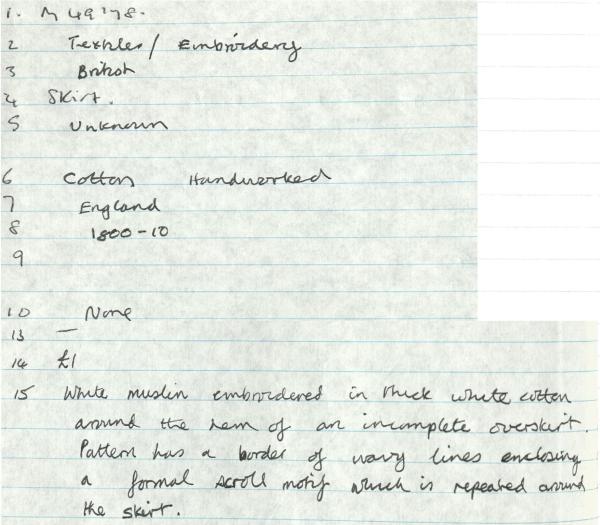 1. M 49'78.
2 Textiles / Embroidery
3 British
4 Skirt.
5 Unknown
6 Cotton Handworked
7 England
8 1800-10
9
10 None
13 —
14 £1
15 White muslin embroidered in thick white cotton
around the hem of an incomplete overskirt.
Pattern has a border of wavy lines enclosing
a formal scroll motif which is repeated around
the skirt.